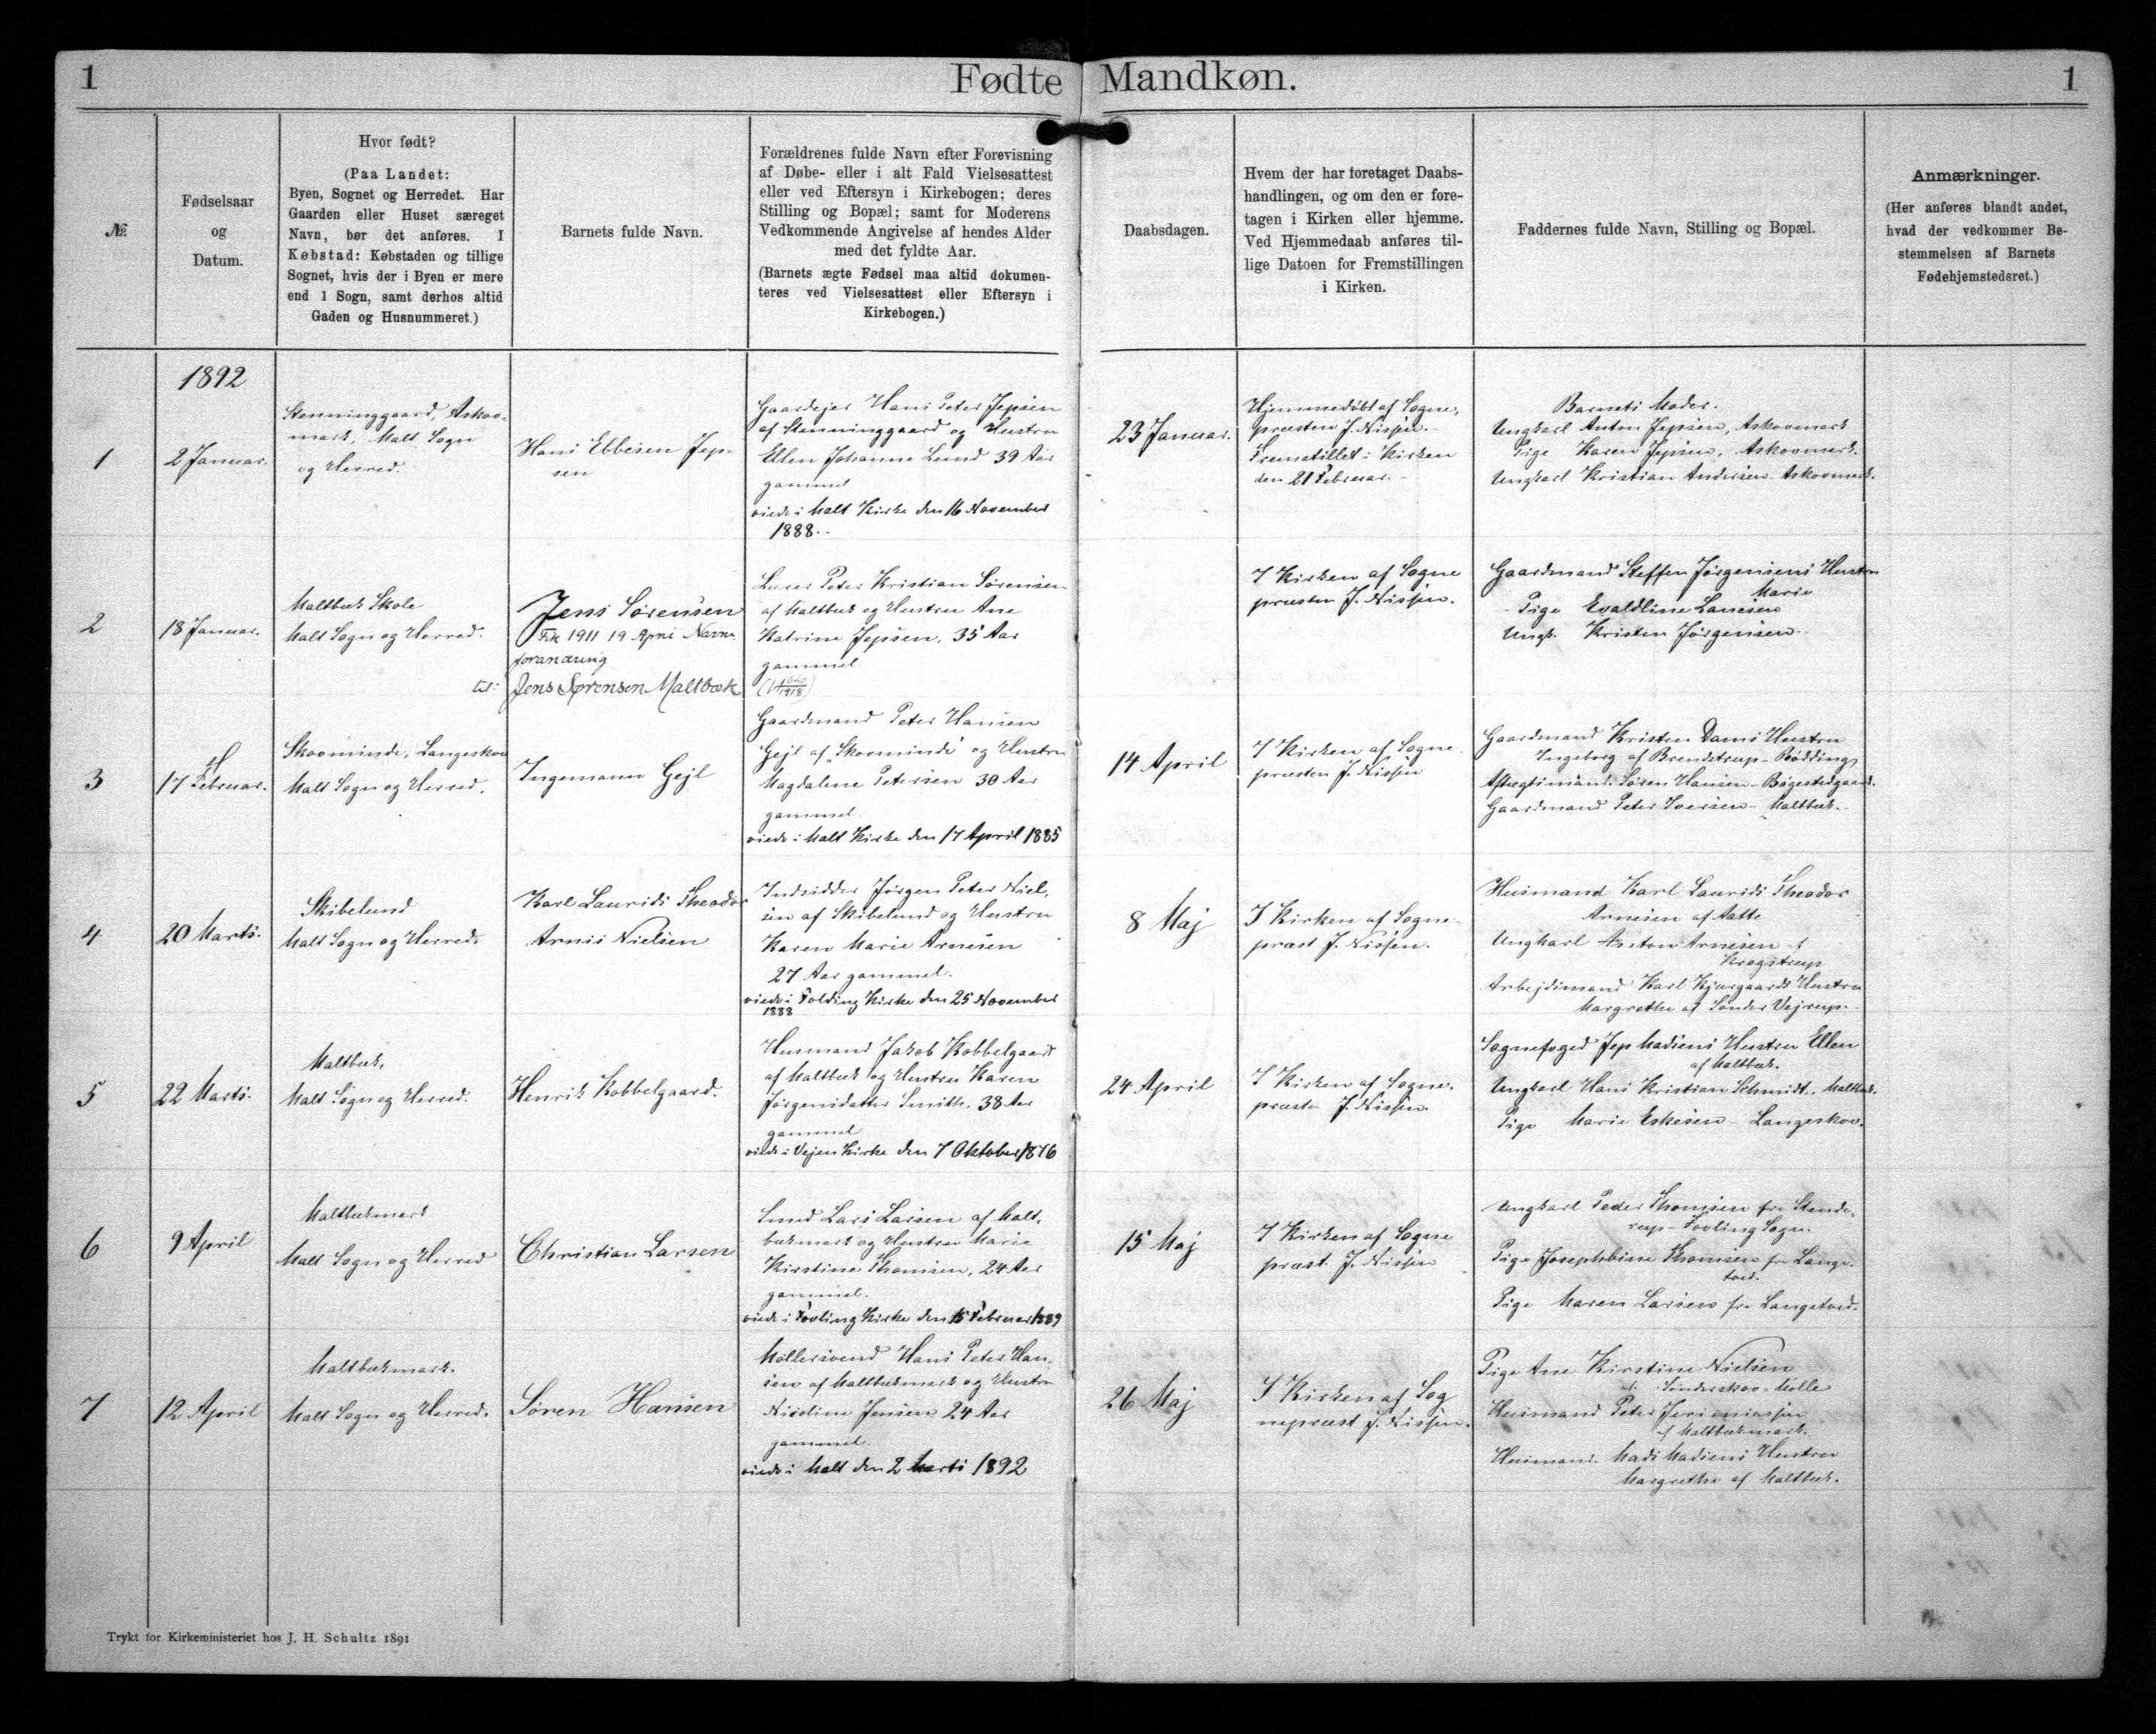 1
Fødte Mandkøn.
1
№
Fødselsaar
og
Datum.
Hvor født?
(Paa Landet:
Byen, Sognet og Herredet. Har
Gaarden eller Huset særeget
Navn, bør det anføres. I
Købstad: Købstaden og tillige
Sognet, hvis der i Byen er mere
end 1 Sogn, samt derhos altid
Gaden og Husnummeret.)
Barnets fulde Navn.
Forældrenes fulde Navn efter Forevisning
af Døbe- eller i alt Fald Vielsesattest
eller ved Eftersyn i Kirkebogen; deres
Stilling og Bopæl; samt for Moderens
Vedkommende Angivelse af hendes Alder
med det fyldte Aar.
(Barnets ægte Fødsel maa altid dokumen-
teres ved Vielsesattest eller Eftersyn i
Kirkebogen.)
Daabsdagen.
Hvem der har foretaget Daabs-
handlingen, og om den er fore-
tagen i Kirken eller hjemme.
Ved Hjemmedaab anføres til-
lige Datoen for Fremstillingen
i Kirken.
Faddernes fulde Navn, Stilling og Bopæl.
Anmærkninger.
(Her anføres blandt andet,
hvad der vedkommer Be-
stemmelsen af Barnets
Fødehjemstedsret.)
1892
1
2 Januar.
Stenninggaard, Askov-
mark, Malt Sogn
og Herred.
Hans Ebbesen Jep-
sen
Gaardejer Hans Peter Jepsen
af Stenninggaard og Hustru
Ellen Johanne Lund 39 Aar
gammel
viede i Malt Kirke den 16 November
1888.
23 Januar.
Hjemmedøbt af Sogne-
præsten J. Nissen.
Fremstillet i Kirken
den 21 Februar.
Barnets Moder.
Ungkarl Anton Jepsen, Askovmark
Pige Karen Jepsen, Askovmark.
Ungkarl Kristian Andersen Askovmark.
2
18 Januar.
Maltbæk Skole
Malt Sogn og Herred.
Jens Sørensen
Fik 1911 19 April Navne
forandring
til: Jens Sørensen Maltbæk
Lærer Peter Kristian Sørensen
af Maltbæk og Hustru Ane
Katrine Jepsen, 35 Aar
gammel
I Kirken af Sogne
præsten J. Nissen.
Gaardmand Steffen Jørgensens Hustru
Marie
Pige Evaldline Lanesen
Ungk. Kristen Jørgensen.
3
17 Februar.
Skovminde, Langeskov
Malt Sogn og Herred.
Ingemann Gejl
Gaardmand Peter Hansen
Gejl af "Skovminde" og Hustru
Magdalene Petersen 30 Aar
gammel.
viede i Malt Kirke den 17 April 1885
14 April
I Kirken af Sogne-
præsten J. Nissen
Gaardmand Kristen Dams Hustru
Ingeborg af Brendstrup - Rødding
Aftægtsmand Søren Hansen - Bøgestedgaard.
Gaardmand Peter Iversen - Maltbæk.
4
20 Marts.
Skibelund
Malt Sogn og Herred.
Karl Laurids Theodor
Arnis Nielsen
Indsidder Jørgen Peter Niel-
sen af Skibelund og Hustru
Karen Marie Arnesen
27 Aar gammel.
viede i Folding Kirke den 25 November
1888
8 Maj
I Kirken af Sogne-
præst J. Nissen.
Husmand Karl Laurids Theodor
Arnesen af Aatte
Ungkarl Anton Arnesen af
Krogstrup
Arbejdsmand Karl Kjærgaards Hustru
Margrethe af Sønder Vejrup.
5
22 Marts.
Maltbæk,
Malt Sogn og Herred.
Henrik Kobbelgaard.
Husmand Jakob Kobbelgaard
af Maltbæk og Hustru Karen
Jørgensdatter Smith, 38 Aar
gammel
viede i Vejen Kirke den 7 Oktober 1876
24 April
I Kirken af Sogne-
præsten J. Nissen.
Sognefoged Jep Madsens Hustru Ellen
af Maltbæk.
Ungkarl Hans Kristian Schmidt, Maltbæk.
Pige Marie Eskesen - Langeskov.
6
9 April
Maltbækmark
Malt Sogn og Herred
Christian Larsen
Smed Lars Larsen af Malt-
bækmark og Hustru Marie
Kirstine Thomsen, 24 Aar
gammel.
viede i Føvling Kirke den 15 Februar 1889
15 Maj
I Kirken af Sogne
præst J. Nissen
Ungkarl Peder Thomsen fra Stende-
rup - Føvling Sogn.
Pige Josephbine Thomsen fra Lange-
tved.
Pige Maren Larsen fra Langetved.
7
12 April
Maltbækmark.
Malt Sogn og Herred.
Søren Hansen
Møllersvend Hans Peter Han-
sen af Maltbækmark og Hustru
Nicoline Jensen 24 Aar
gammel.
viede i Malt den 2 Marts 1892
26 Maj
I Kirken af Sog
nepræst J. Nissen.
Pige Ane Kirstine Nielsen
af Sønderskov Mølle
Husmand Peter
af Maltbækmark.
Husmand Mads Madsens Hustru
Margrethe af Maltbæk.
Trykt for Kirkeministeriet hos J. H. Schultz 1891